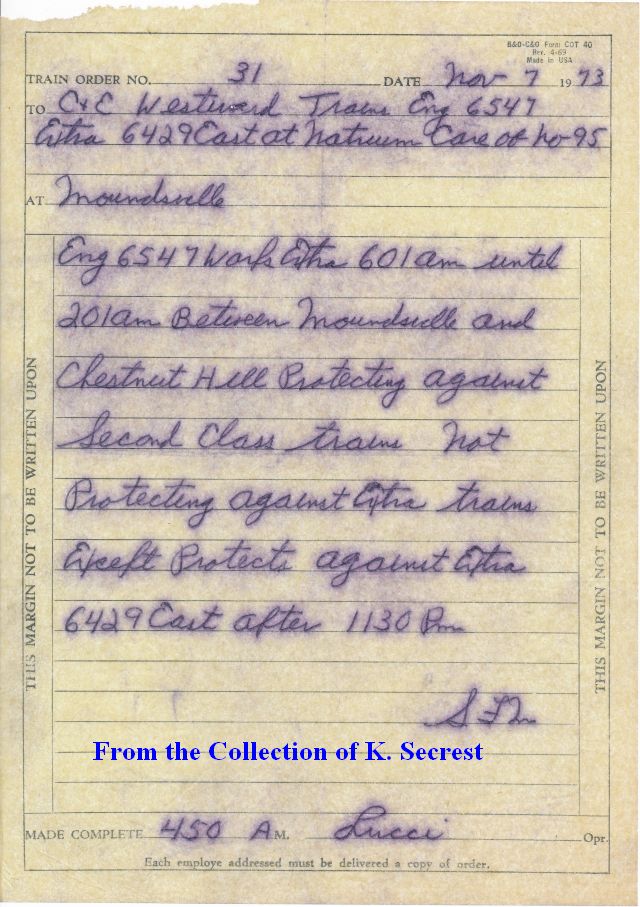 B&O-C&O Form COT 40
Rev. 4-69
Made in USA
TRAIN ORDER NO. 31 DATE Nov 7 1973
TO C&E Westward Trains Eng 6547
Extra 6429 East at Natrium Care of No-95
AT Moundsville
Eng 6547 Works Extra 601 am until
201 am Between Moundsville and
Chestnut Hill Protecting against
Second Class trains Not
Protecting against Extra trains
Except Protects against Extra
6429 East after 1130 Pm
From the Collection of K. Secrest
MADE COMPLETE 450 A M. Lucci Opr.
Each employe addressed must be delivered a copy of order.
THIS MARGIN NOT TO BE WRITTEN UPON
THIS MARGIN NOT TO BE WRITTEN UPON